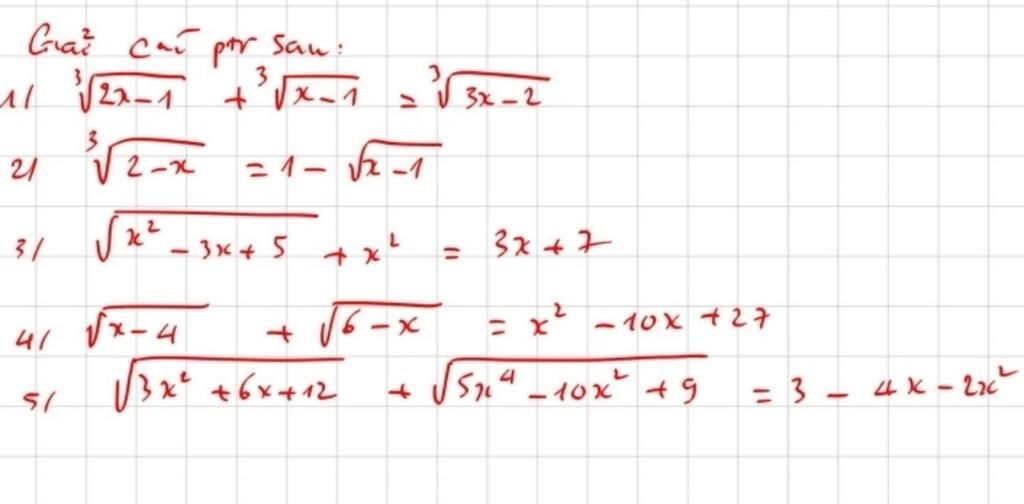 Giải các ptr sau:
1/ ∛(2x-1) + ∛(x-1) = ∛(3x-2)
2/ ∛(2-x) = 1 - √(x-1)
3/ √(x² - 3x + 5) + x² = 3x + 7
4/ √(x-4) + √(6-x) = x² - 10x + 27
5/ √(3x² + 6x + 12) + √(5x⁴ - 10x² + 9) = 3 - 4x - 2x²